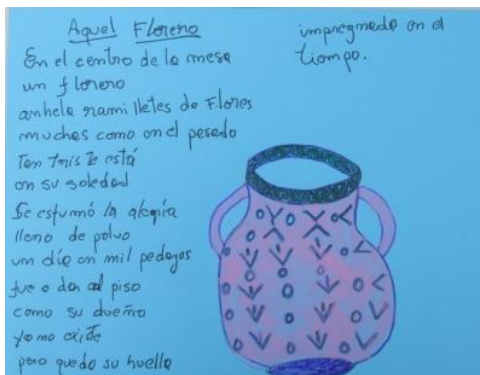 Aquel Florero
En el centro de la mesa
un florero
anhela ramilletes de Flores
muchas como en el pasado
Tan triste está
en su soledad
Se esfumó la alegría
lleno de polvo
un día en mil pedazos
fue a dar al piso
como su dueño
ya no existe
pero queda su huella
impregnada en el
tiempo.